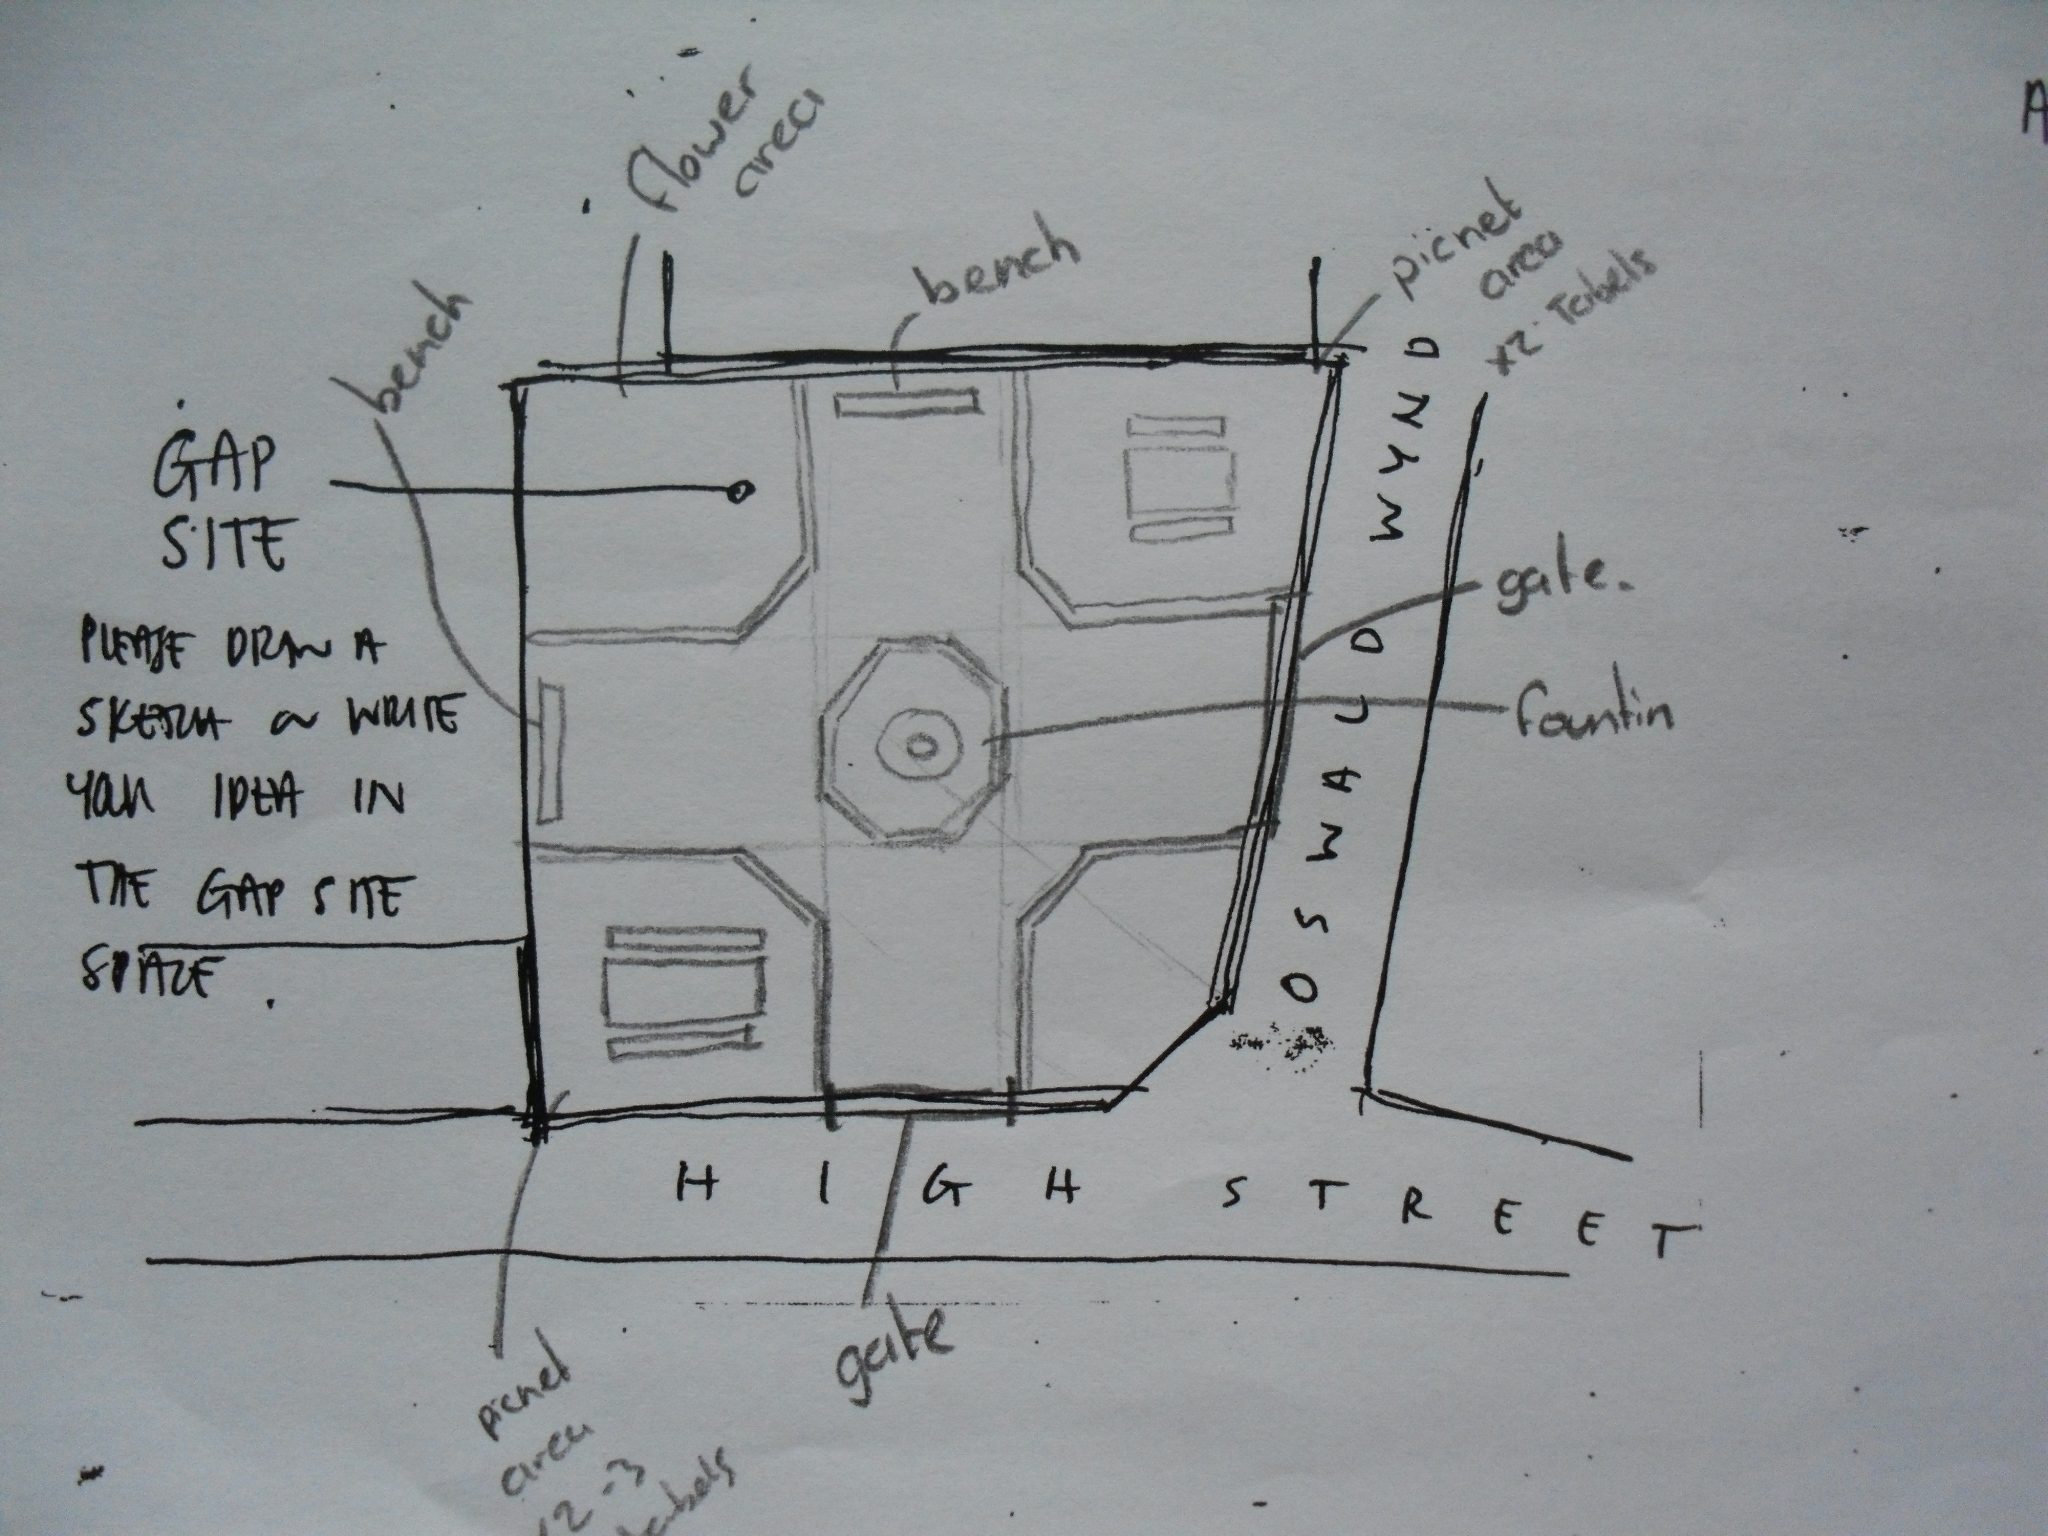 flower
area
bench
bench
picnet
area
x2 Tabels
GAP
SITE
PLEASE DRAW A
SKETCH or WRITE
YOUR IDEA IN
THE GAP SITE
SPACE.
gate.
fountin
OSWALD WYND
HIGH STREET
gate
picnet
area
x2-3
tabels
A